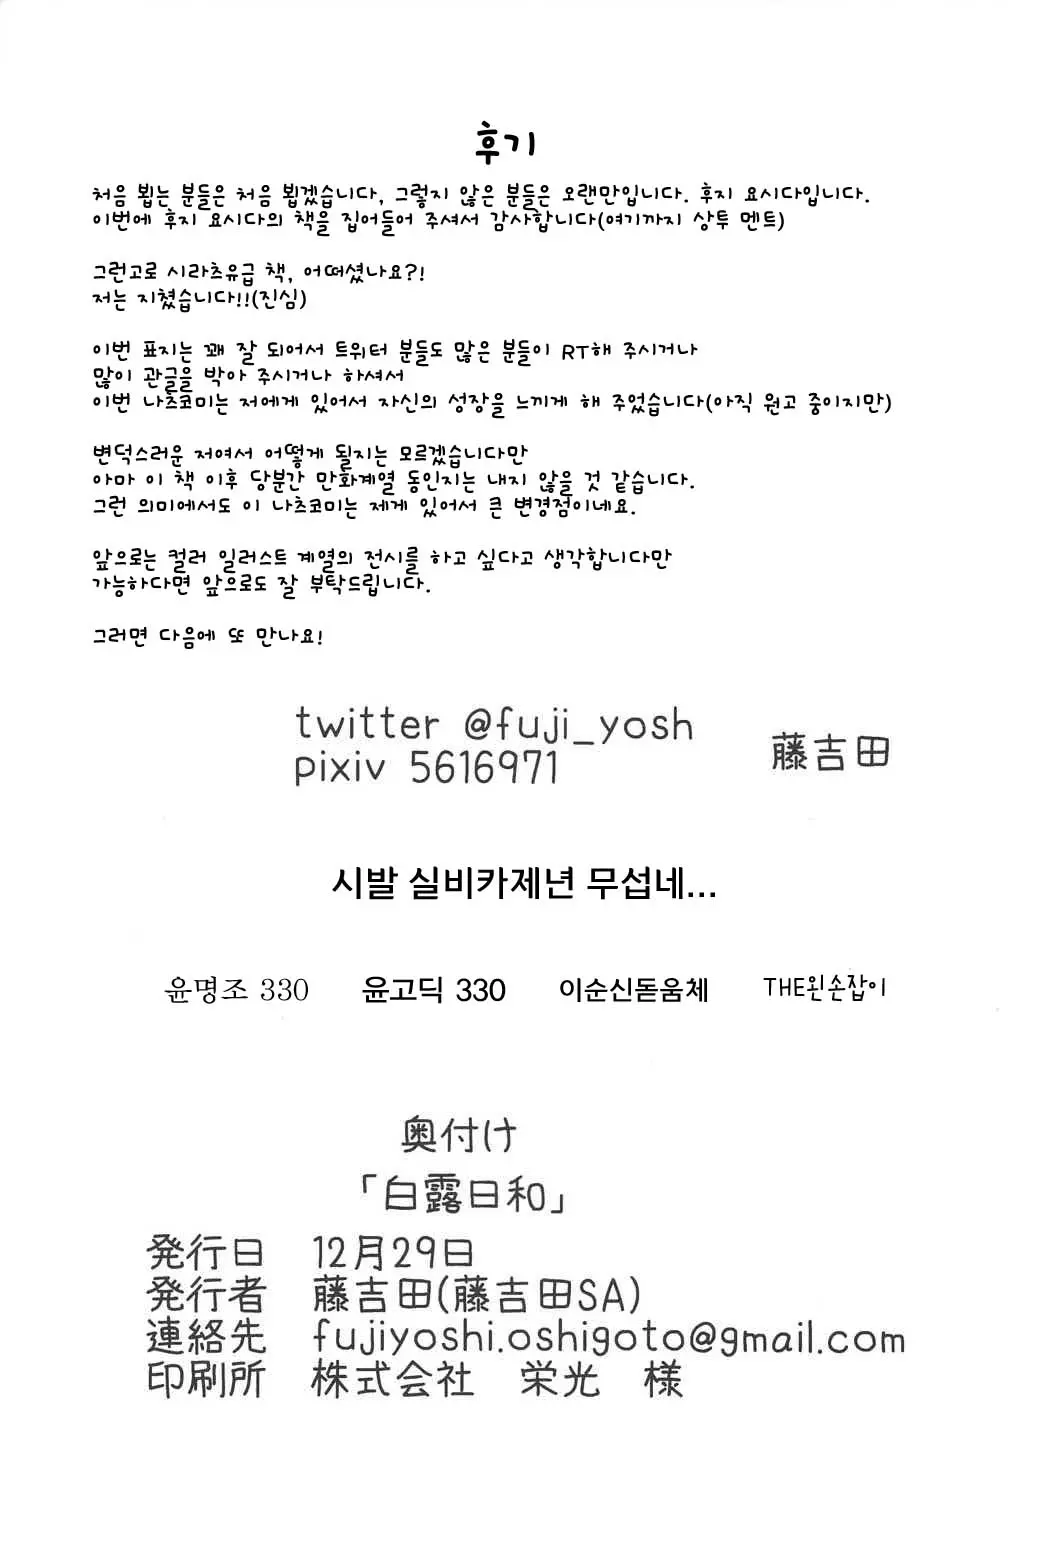 후기
처음 뵙는 분들은 처음 뵙겠습니다, 그렇지 않은 분들은 오랜만입니다. 후지 요시다입니다.
이번에 후지 요시다의 책을 집어들어 주셔서 감사합니다(여기까지 상투 멘트)
그런고로 시라츠유급 책, 어떠셨나요?!
저는 지쳤습니다!!(진심)
이번 표지는 꽤 잘 되어서 트위터 분들도 많은 분들이 RT해 주시거나
많이 관글을 박아 주시거나 하셔서
이번 나츠코미는 저에게 있어서 자신의 성장을 느끼게 해 주었습니다(아직 원고 중이지만)
변덕스러운 저여서 어떻게 될지는 모르겠습니다만
아마 이 책 이후 당분간 만화계열 동인지는 내지 않을 것 같습니다.
그런 의미에서도 이 나츠코미는 제게 있어서 큰 변경점이네요.
앞으로는 컬러 일러스트 계열의 전시를 하고 싶다고 생각합니다만
가능하다면 앞으로도 잘 부탁드립니다.
그러면 다음에 또 만나요!
twitter @fuji_yosh
pixiv 5616971
藤吉田
시발 실비카제년 무섭네...
윤명조 330 윤고딕 330 이순신돋움체 THE왼손잡이
奥付け
「白露日和」
発行日 12月29日
発行者 藤吉田(藤吉田SA)
連絡先 fujiyoshi.oshigoto@gmail.com
印刷所 株式会社 栄光 様